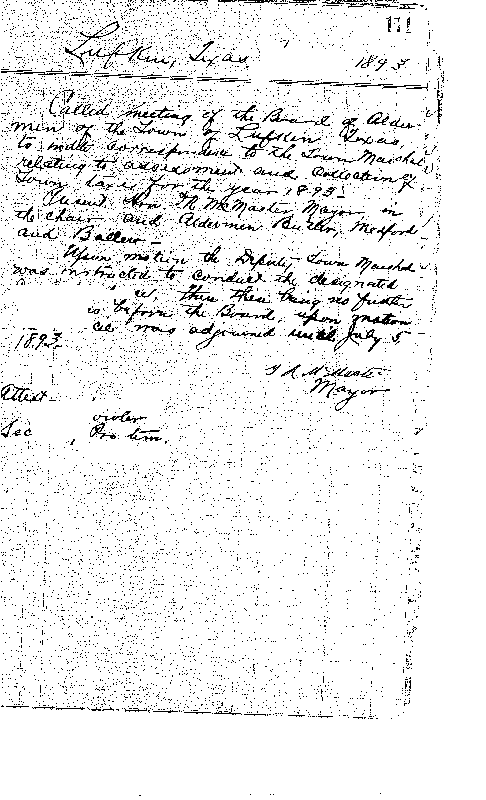 171
Lufkin, Texas
1893
Called meeting of the Board of Alder
men of the Town of Lufkin Texas,
to correspondence to the Town Marshal
relating to assessment and collection of
Town taxes for the year 1893
Present Hon McMaster Mayor in
the chair and Aldermen Butler, Medford
and Ballew
Upon motion the Deputy Town Marshal
was instructed to conduct the designated
there being no further
before the Board, upon motion
was adjourned until July 5
1893
McMaster
Mayor
Attest
Sec Pro tem.